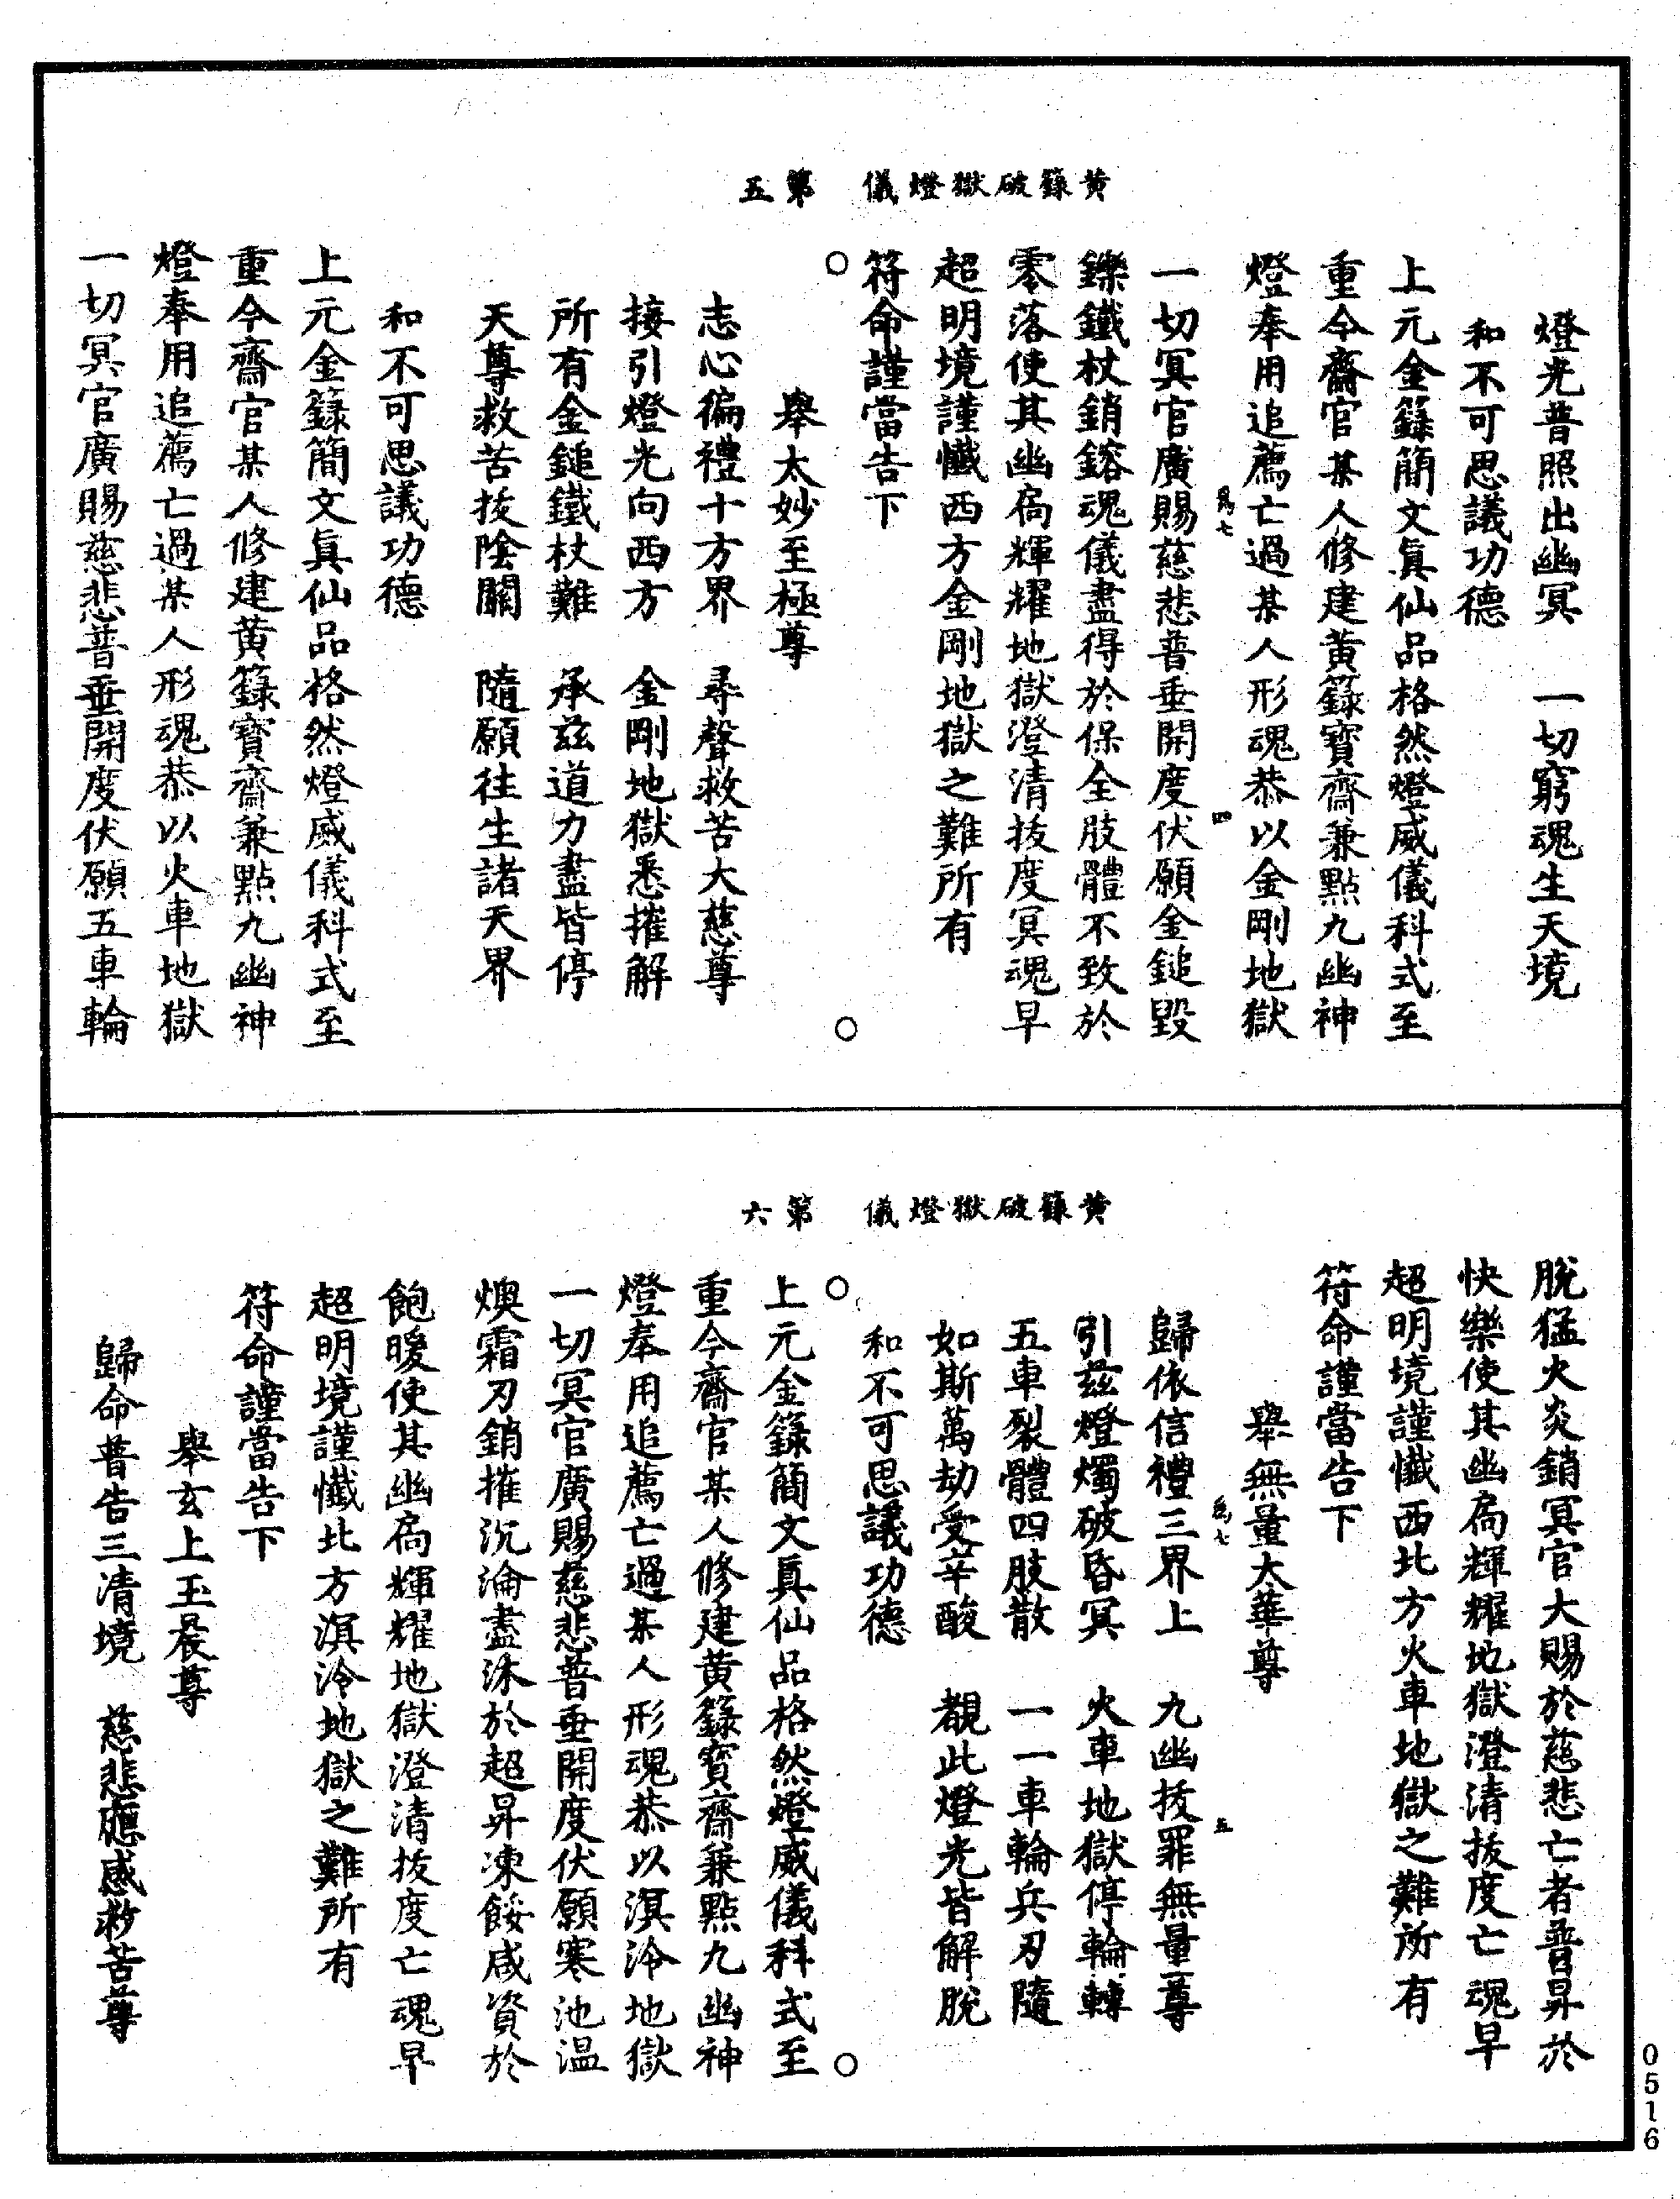 黃籙破獄燈儀　第五
燈光普照出幽冥　一切窮魂生天境
和不可思議功德
上元金籙簡文真仙品格然燈威儀科式至
重今齋官某人修建黃籙寶齋兼點九幽神
燈奉用追薦亡過某人形魂恭以金剛地獄
七　四
一切冥官廣賜慈悲普垂開度伏願金鎚毀
鑠鐵杖銷鎔魂儀盡得於保全肢體不致於
零落使其幽扃輝耀地獄澄清拔度冥魂早
超明境謹懺西方金剛地獄之難所有
符命謹當告下
○　○
舉太妙至極尊
志心徧禮十方界　尋聲救苦大慈尊
接引燈光向西方　金剛地獄悉摧解
所有金鎚鐵杖難　承茲道力盡皆停
天尊救苦拔陰關　隨願往生諸天界
和不可思議功德
上元金籙簡文真仙品格然燈威儀科式至
重今齋官某人修建黃籙寶齋兼點九幽神
燈奉用追薦亡過某人形魂恭以火車地獄
一切冥官廣賜慈悲普垂開度伏願五車輪
黃籙破獄燈儀　第六
脫猛火炎銷冥官大賜於慈悲亡者普昇於
快樂使其幽扃輝耀地獄澄清拔度亡魂早
超明境謹懺西北方火車地獄之難所有
符命謹當告下
舉無量太華尊
七　五
歸依信禮三界上　九幽拔罪無量尊
引茲燈燭破昏冥　火車地獄停輪轉
五車裂體四肢散　一一車輪兵刃隨
如斯萬劫受辛酸　覩此燈光皆解脫
和不可思議功德
○　○
上元金籙簡文真仙品格然燈威儀科式至
重今齋官某人修建黃籙寶齋兼點九幽神
燈奉用追薦亡過某人形魂恭以溟泠地獄
一切冥官廣賜慈悲普垂開度伏願寒池温
燠霜刃銷摧沉淪盡沐於超昇凍餒咸資於
飽暖使其幽扃輝耀地獄澄清拔度亡魂早
超明境謹懺北方溟泠地獄之難所有
符命謹當告下
舉玄上玉晨尊
歸命普告三清境　慈悲應感救苦尊
0516